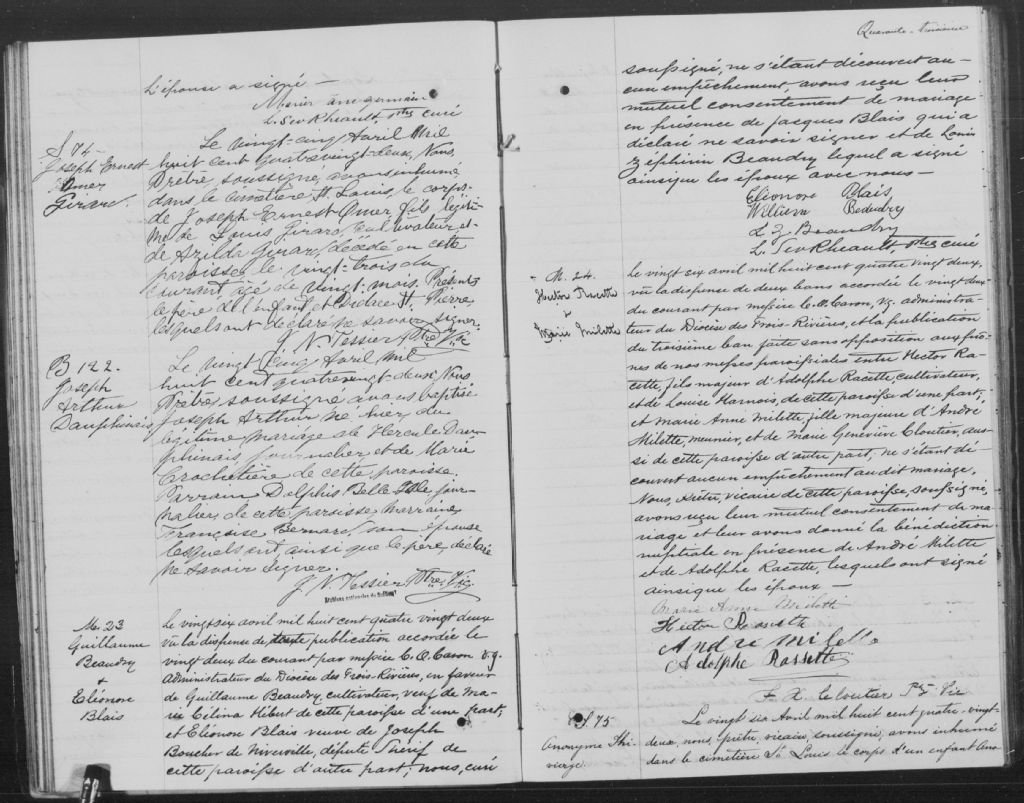 L'épouse a signé —
Marier Anne germain
L. Sev Rheault Ptre curé
S. 74 -
Joseph Ernest
Omer
Girard.
Le vingt-cinq Avril Mil
huit cent quatrevingt-deux, Nous,
Prêtre soussigné, avons inhumé
dans le cimetière St. Louis, le corps
de Joseph Ernest Omer, fils légiti-
me de Louis Girard, cultivateur, et
de Azilda Girard, décédé en cette
paroisse le vingt-trois du
courant, âgé de vingt-mois. Présents
le père de l'enfant et St. Pierre
lesquels ont déclaré ne savoir signer.
J. N. Tessier Ptre Vic
B 122.
Joseph
Arthur
Dauphinais
Le vingt cinq Avril mil
huit cent quatrevingt-deux, Nous
Prêtre soussigné avons baptisé
Joseph Arthur né hier du
légitime mariage de Hercule Dau-
phinais journalier et de Marie
Crochetière de cette paroisse.
Parrain Dolphis Belle Isle, jour-
nalier de cette paroisse, Marraine
Françoise Bernard, son épouse
lesquels ont, ainsi que le père, déclaré
ne savoir signer.
J. N. Tessier Ptre Vic.
Archives nationales du Québec
M. 23
Guillaume
Beaudry
+
Eléonore
Blais
Le vingt six avril mil huit cent quatre vingt deux
vu la dispense de toute publication accordée le
vingt deux du courant par messire C. O. Caron v.g.
Administrateur du Diocèse des Trois-Rivières, en faveur
de Guillaume Beaudry, cultivateur, veuf de Ma-
rie Célina Hébert de cette paroisse d'une part,
et Eléonore Blais veuve de Joseph
Boucher de Niverville, député Shérif de
cette paroisse d'autre part; nous, curé
Quarante-troisième
soussigné, ne s'étant découvert au-
cun empêchement, avons reçu leur
mutuel consentement de mariage
en présence de Jacques Blais qui a
déclaré ne savoir signer et de Louis
Zéphirin Beaudry lequel a signé
ainsique les époux avec nous —
Eléonore Blais
William Beaudry
L Z Beaudry
L. Sev Rheault Ptre curé
M. 24.
Hector Racette
+
Marie Milette
Le vingt six avril mil huit cent quatre vingt deux,
vu la dispense de deux bans accordée le vingt deux
du courant par messire C. O. Caron, v.g. administra-
teur du Diocèse des Trois-Rivières, et la publication
du troisième ban faite sans opposition aux prô-
nes de nos messes paroissiales entre Hector Ra-
cette, fils majeur d'Adolphe Racette, cultivateur,
et de Louise Harnois, de cette paroisse d'une part;
et Marie Anne Milette, fille majeure d'André
Milette, meunier, et de Marie Geneviève Cloutier, aus-
si de cette paroisse d'autre part; ne s'étant dé-
couvert aucun empêchement au dit mariage,
Nous, Prêtre, vicaire de cette paroisse, soussigné,
avons reçu leur mutuel consentement de ma-
riage et leur avons donné la bénédiction
nuptiale en présence de André Milette
et de Adolphe Racette, lesquels ont signé
ainsique les époux —
Marie Anne Milette
Hector Rassette
André Milette
Adolphe Rassette
F. X. Cloutier Ptre Vic
S 75
Anonyme Thi-
vierge.
Le vingt six Avril mil huit cent quatre-vingt-
deux, nous, prêtre, vicaire, soussigné, avons inhumé
dans le cimetière St. Louis le corps d'un enfant ano